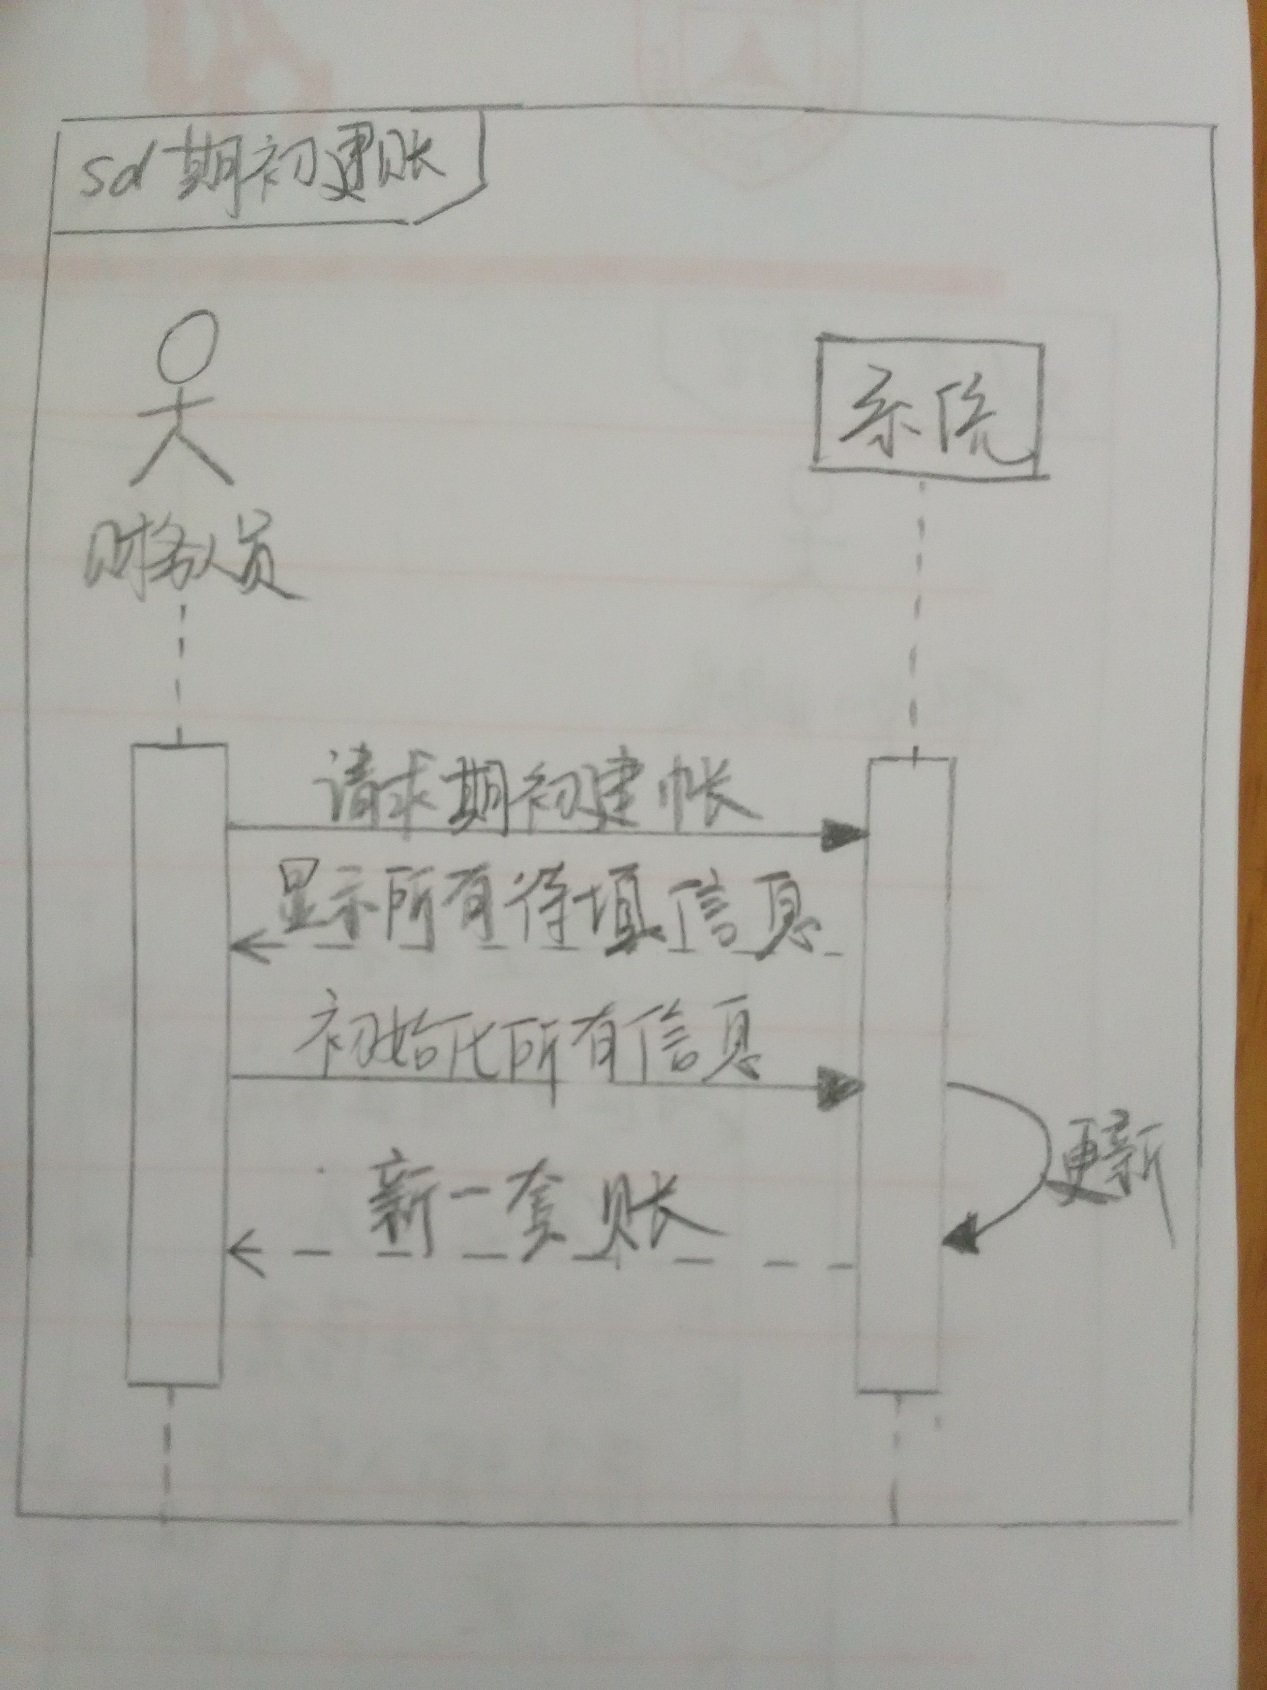 sd 期初建账
系统
财务人员
请求期初建帐
显示所有待填信息
初始化所有信息
更新
新一套账